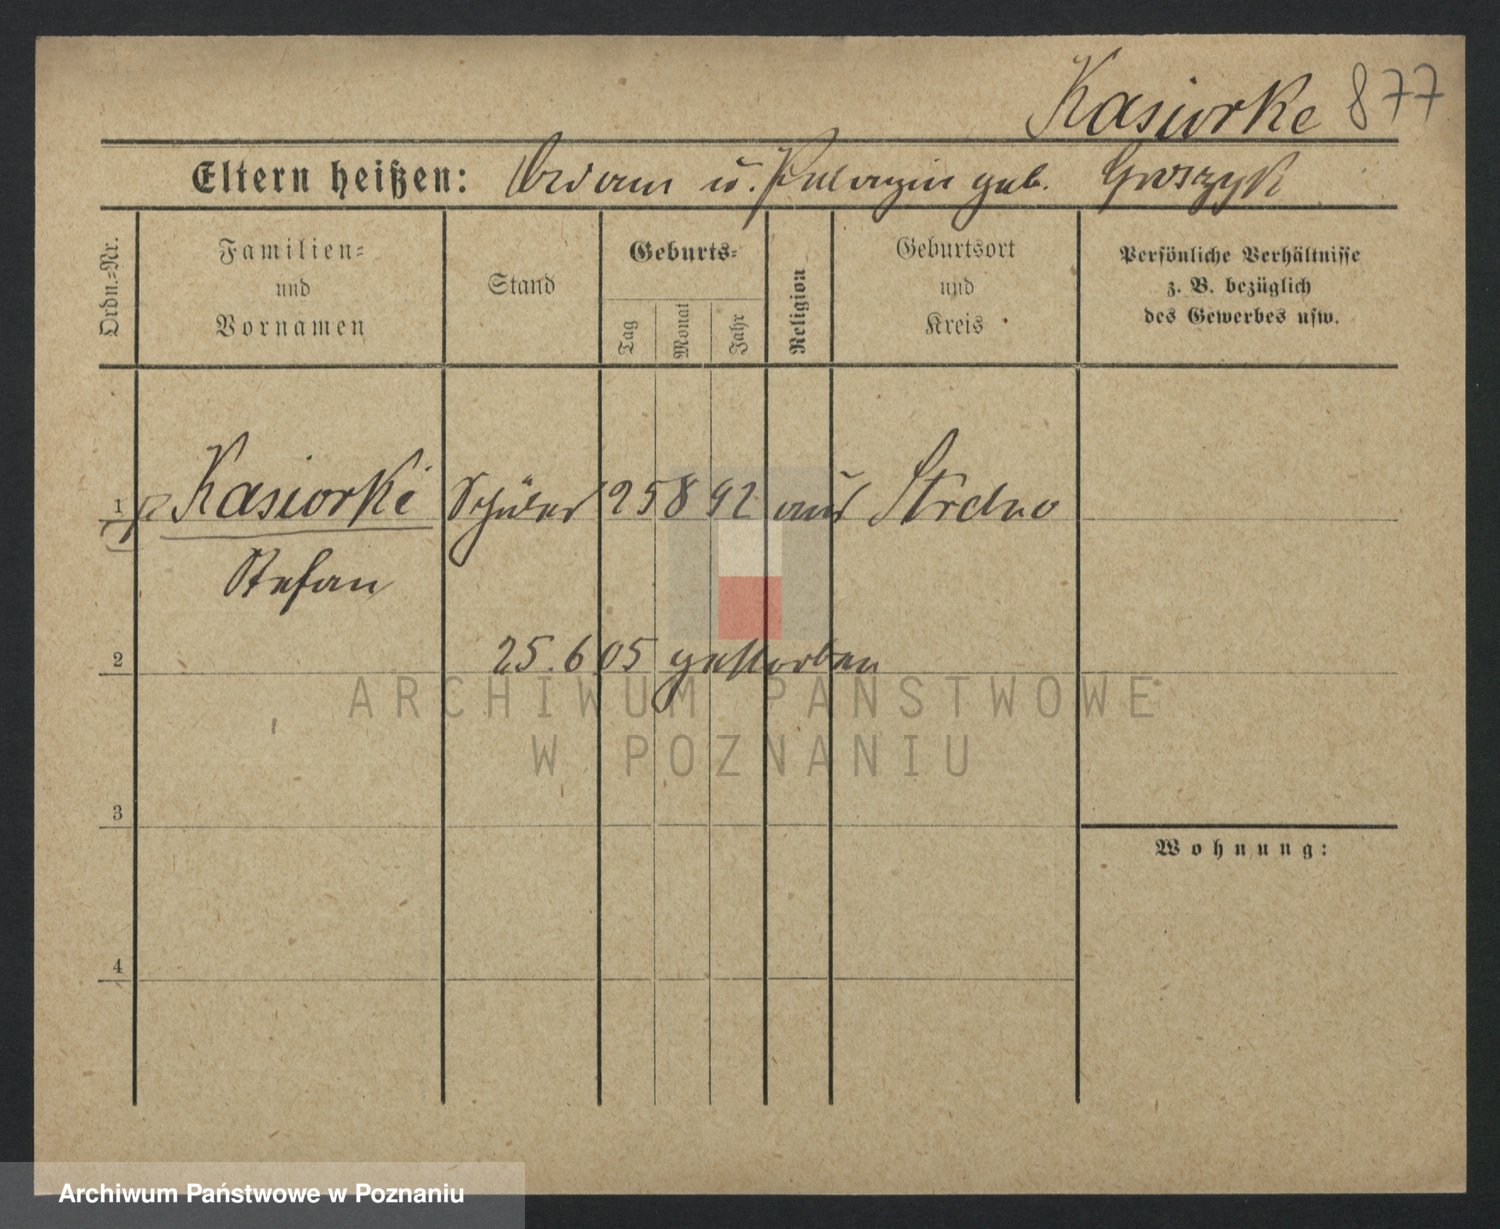 Kasiorke 877
Eltern heißen: Adam u. Pelagia geb. Groszyk
Ordn.-Nr.
Familien-
und
Vornamen
Stand
Geburts-
Tag
Monat
Jahr
Religion
Geburtsort
und
Kreis
Persönliche Verhältnisse
z. B. bezüglich
des Gewerbes usw.
1 Kasiorke Schüler 25 8 92 aus Strelno
Stefan
2 25.6 05 gestorben
3
Wohnung:
4
ARCHIWUM PAŃSTWOWE
W POZNANIU
Archiwum Państwowe w Poznaniu